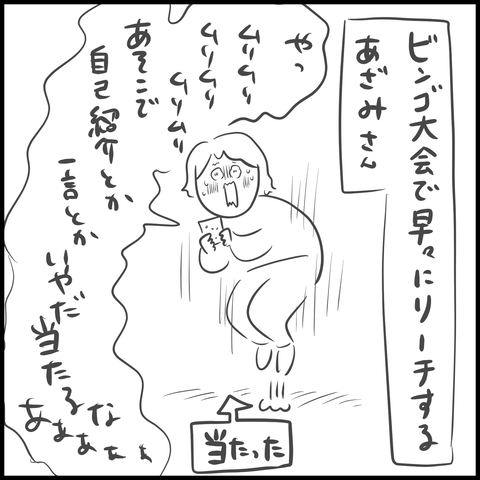 ビンゴ大会で早々にリーチする
あざみさん
やっ
ムリムリ
ムリムリ
ムリムリ
あそこで
自己紹介とか
一言とか
いやだ
当たるな
あぁぁぁぁ
当たった